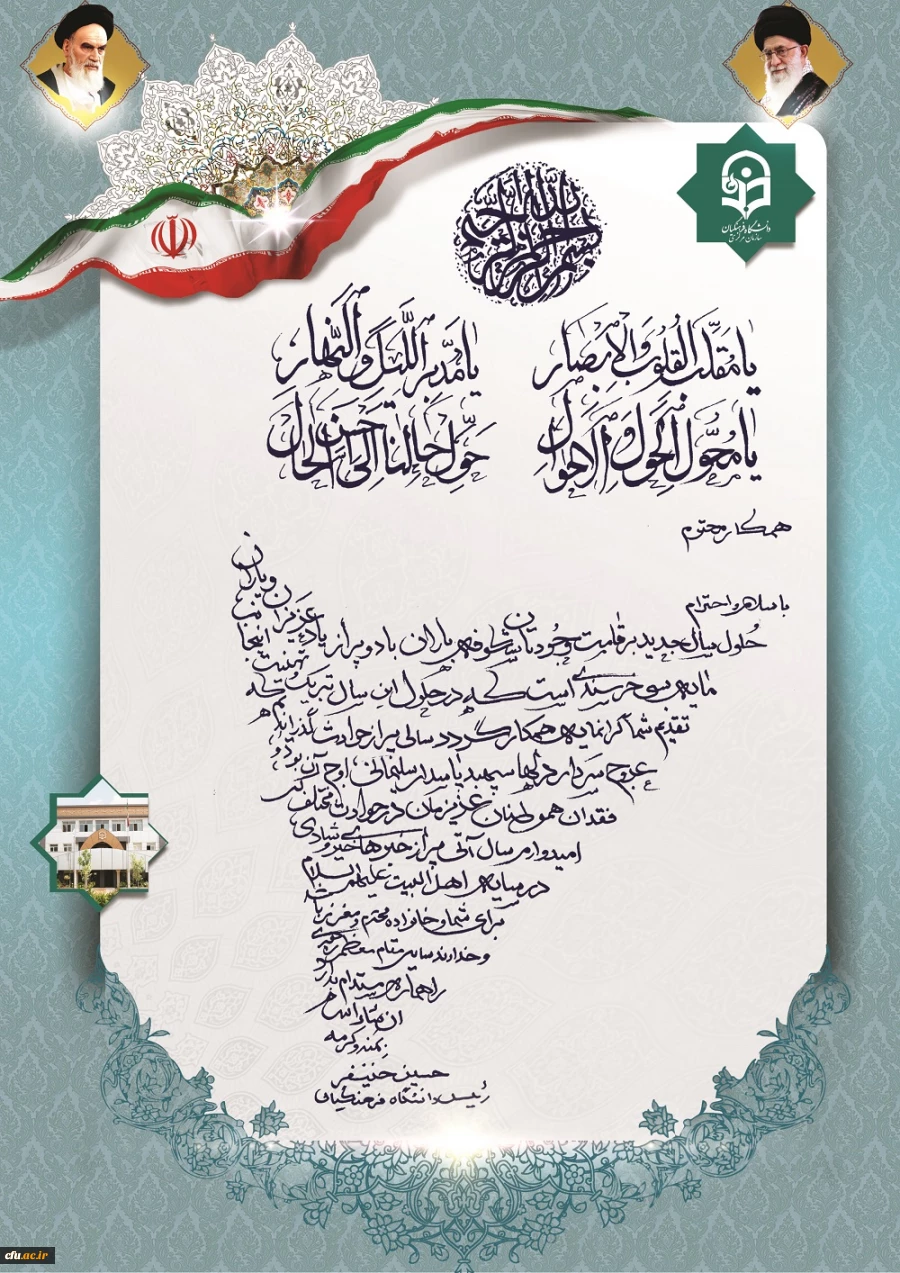 بسم الله الرحمن الرحیم
دانشگاه فرهنگیان
سازمان مرکزی
یا مُقَلِّبَ القُلوبِ وَالاَبصار یا مُدَبِّرَ اللَّیلِ وَالنَّهار
یا مُحَوِّلَ الحَولِ وَ الاَحوال حَوِّل حالَنا اِلی اَحسَنِ الحال
همکار محترم
با سلام و احترام
حُلول سال جدید بر قامت وجودتان شکوفه باران باد و پر از یاد عزیزان و یاران
مایه خرسندی است که در حلول این سال تبریک و تهنیت
تقدیم شما گرانمایه همکار گردد سالی پر از حوادث گذراندیم که
عروج سردار دلها سپهبد پاسدار سلیمانی اوج آن بود و
فقدان هموطنان عزیزمان در حوادث مختلف
امیدوارم سال آتی پر از خبرهای خیر و شادی
در سایه اهل البیت علیهم السلام
برای شما و خانواده محترم و معزز باشد
و خداوند سایه مقام معظم رهبری
را همواره مستدام بدارد
ان شاء الله
بمنه و کرمه
حسین خنیفر
رئیس دانشگاه فرهنگیان
cfu.ac.ir